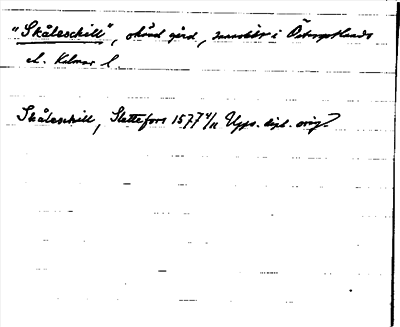 "Skåleskill", okänd gård, snarast i Östergötlands
el. Kalmar l.
Skåleskill, Slettefors 1577 4/11 Upps. dipl. orig.